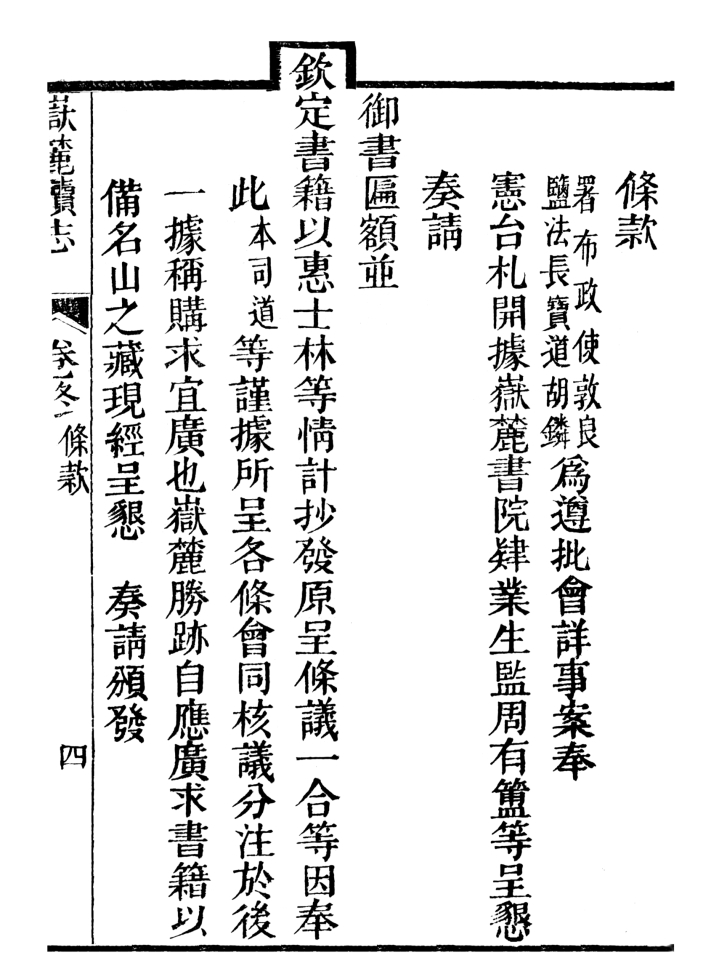 條款
署布政使敦良
鹽法長寶道胡鏻
為遵批會詳事案奉
憲台札開據嶽麓書院肄業生監周有簠等呈懇
奏請
御書匾額並
欽定書籍以惠士林等情計抄發原呈條議一合等因奉
此本司道等謹據所呈各條會同核議分注於後
一據稱購求宜廣也嶽麓勝跡自應廣求書籍以
備名山之藏現經呈懇 奏請頒發
嶽麓續志
卷冬一 條款
四